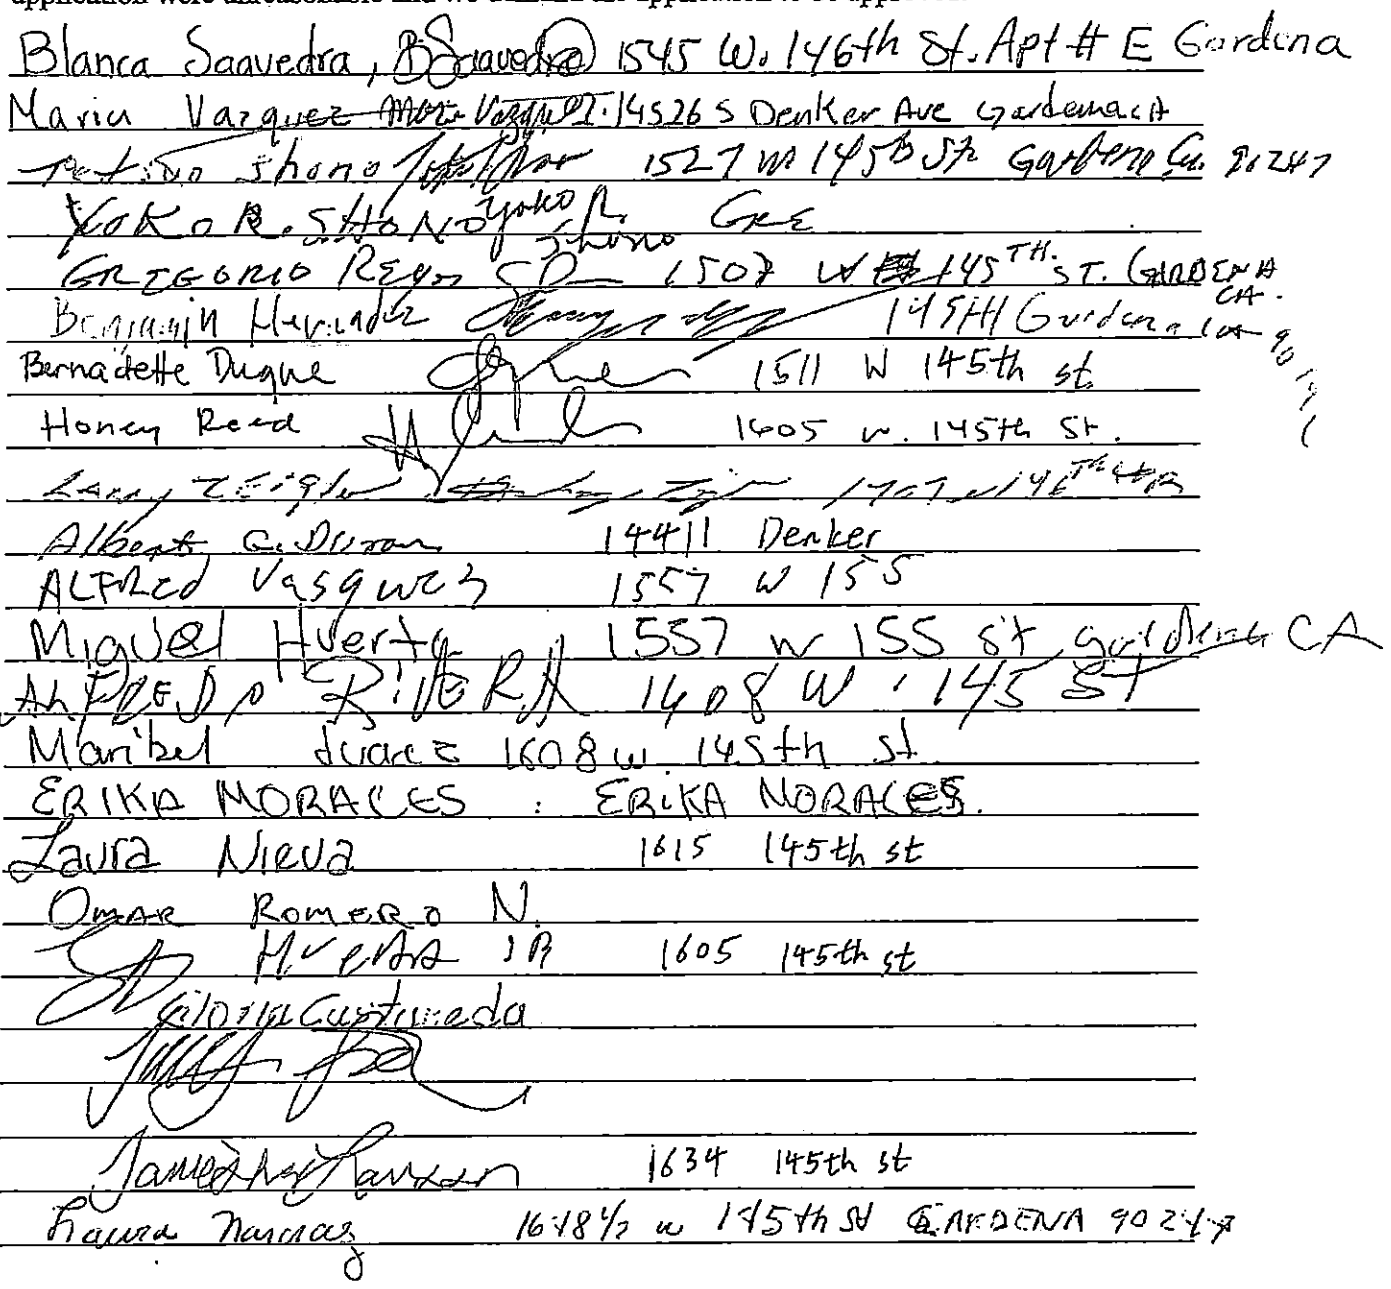 Blanca Saavedra, B Saavedra 1545 W. 146th St. Apt # E Gardena
Maria Vazquez Vazquez. 14526 S Denker Ave Gardena CA
Shono 1527 W 145th St Gardena Ca. 90247
YOKO R. SHONO Yoko R. Shono
GREGORIO Reys 1507 W 145TH. ST. GARDENA CA.
Benjamin Hernadez 145TH Gardena
Bernadette Duque 1511 W 145th st.
Honey Reed 1605 w. 145th St.
Larry Zeigler
Albert C. Duran 14411 Denker
ALFREd Vasquez 1557 W 155
Miguel Huerta 1557 W 155 st gardena CA
ALFREDO RiVERA 1608 W. 145 ST
Maribel Juarez 1608 w. 145th st
ERIKA MORALES : ERiKA MORALES.
Laura Nieva 1615 145th st
OMAR ROMERO N.
HUERTA JR 1605 145th st
Gloria Castaneda
1634 145th st
Laura 1618 1/2 w 145th St GARDENA 90247